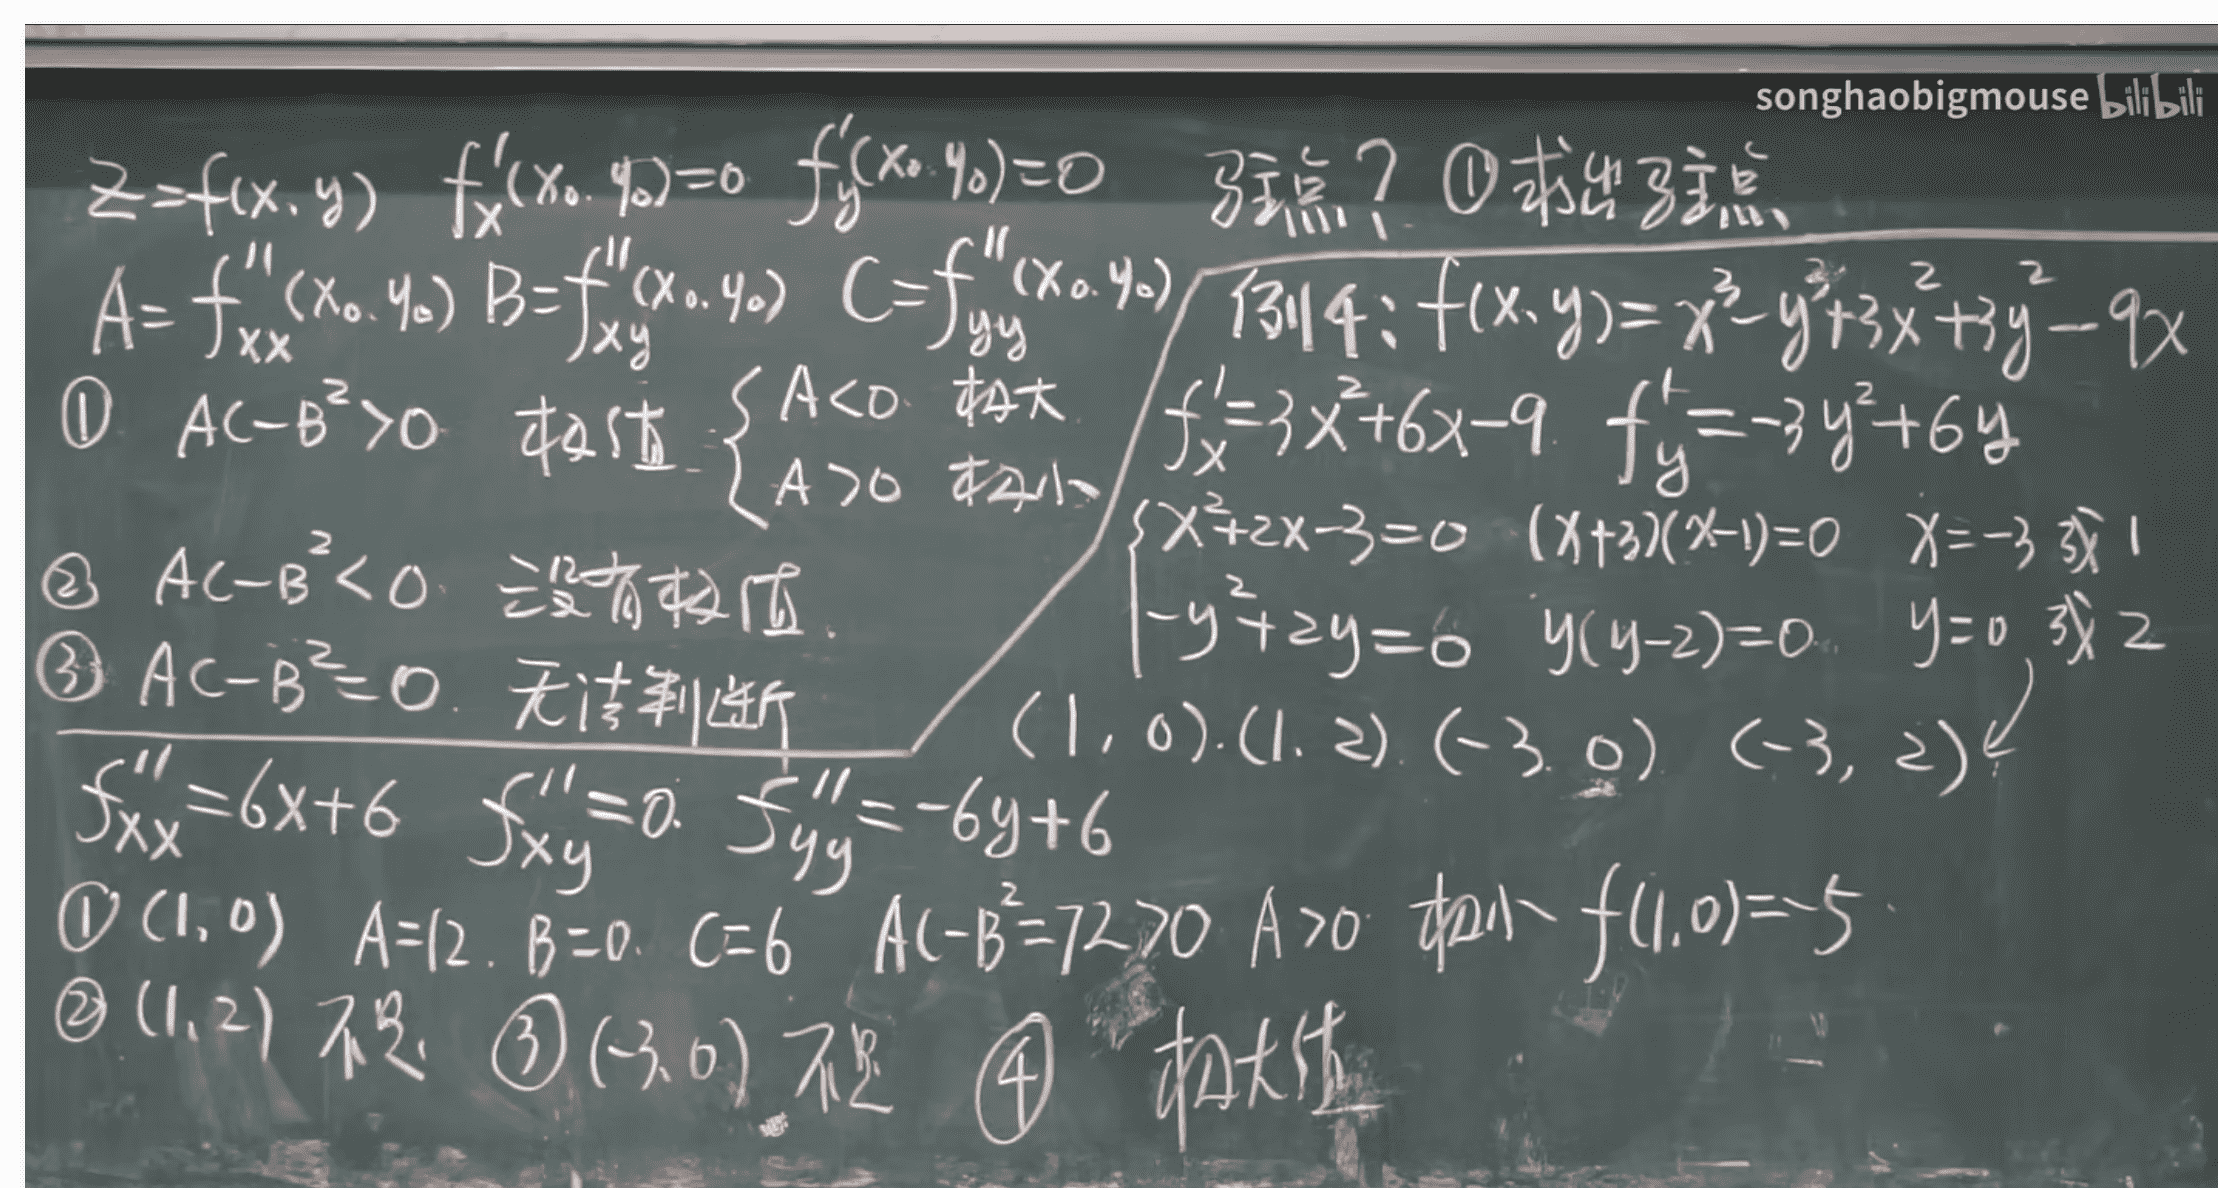 songhaobigmouse bilibili
Z=f(x,y) f'x(x₀,y₀)=0 f'y(x₀,y₀)=0 驻点? ①求出驻点
A=f''xx(x₀,y₀) B=f''xy(x₀,y₀) C=f''yy(x₀,y₀)
① AC-B²>0 极值 { A<0 极大
A>0 极小
② AC-B²<0. 没有极值.
③ AC-B²=0. 无法判断
例4: f(x,y)=x³-y³+3x²+3y²-9x
f'x=3x²+6x-9 f'y=-3y²+6y
{ x²+2x-3=0 (x+3)(x-1)=0 x=-3或1
-y²+2y=0 y(y-2)=0. y=0或2
(1,0).(1,2).(-3,0) (-3,2)
f''xx=6x+6 f''xy=0. f''yy=-6y+6
①(1,0) A=12. B=0. C=6 AC-B²=72>0 A>0 极小 f(1,0)=-5
②(1,2) 不是. ③(-3,0) 不是 ④ 极大值